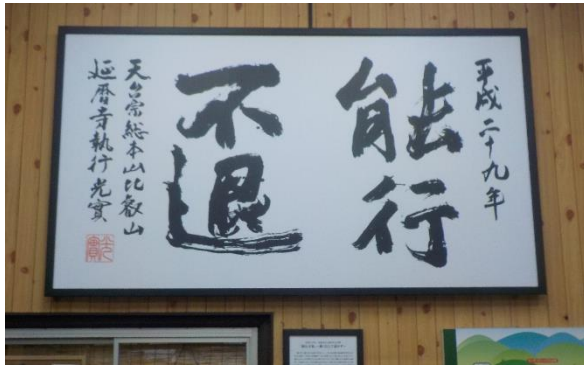 平成二十九年
能行
不退
天台宗総本山比叡山
延暦寺執行光實